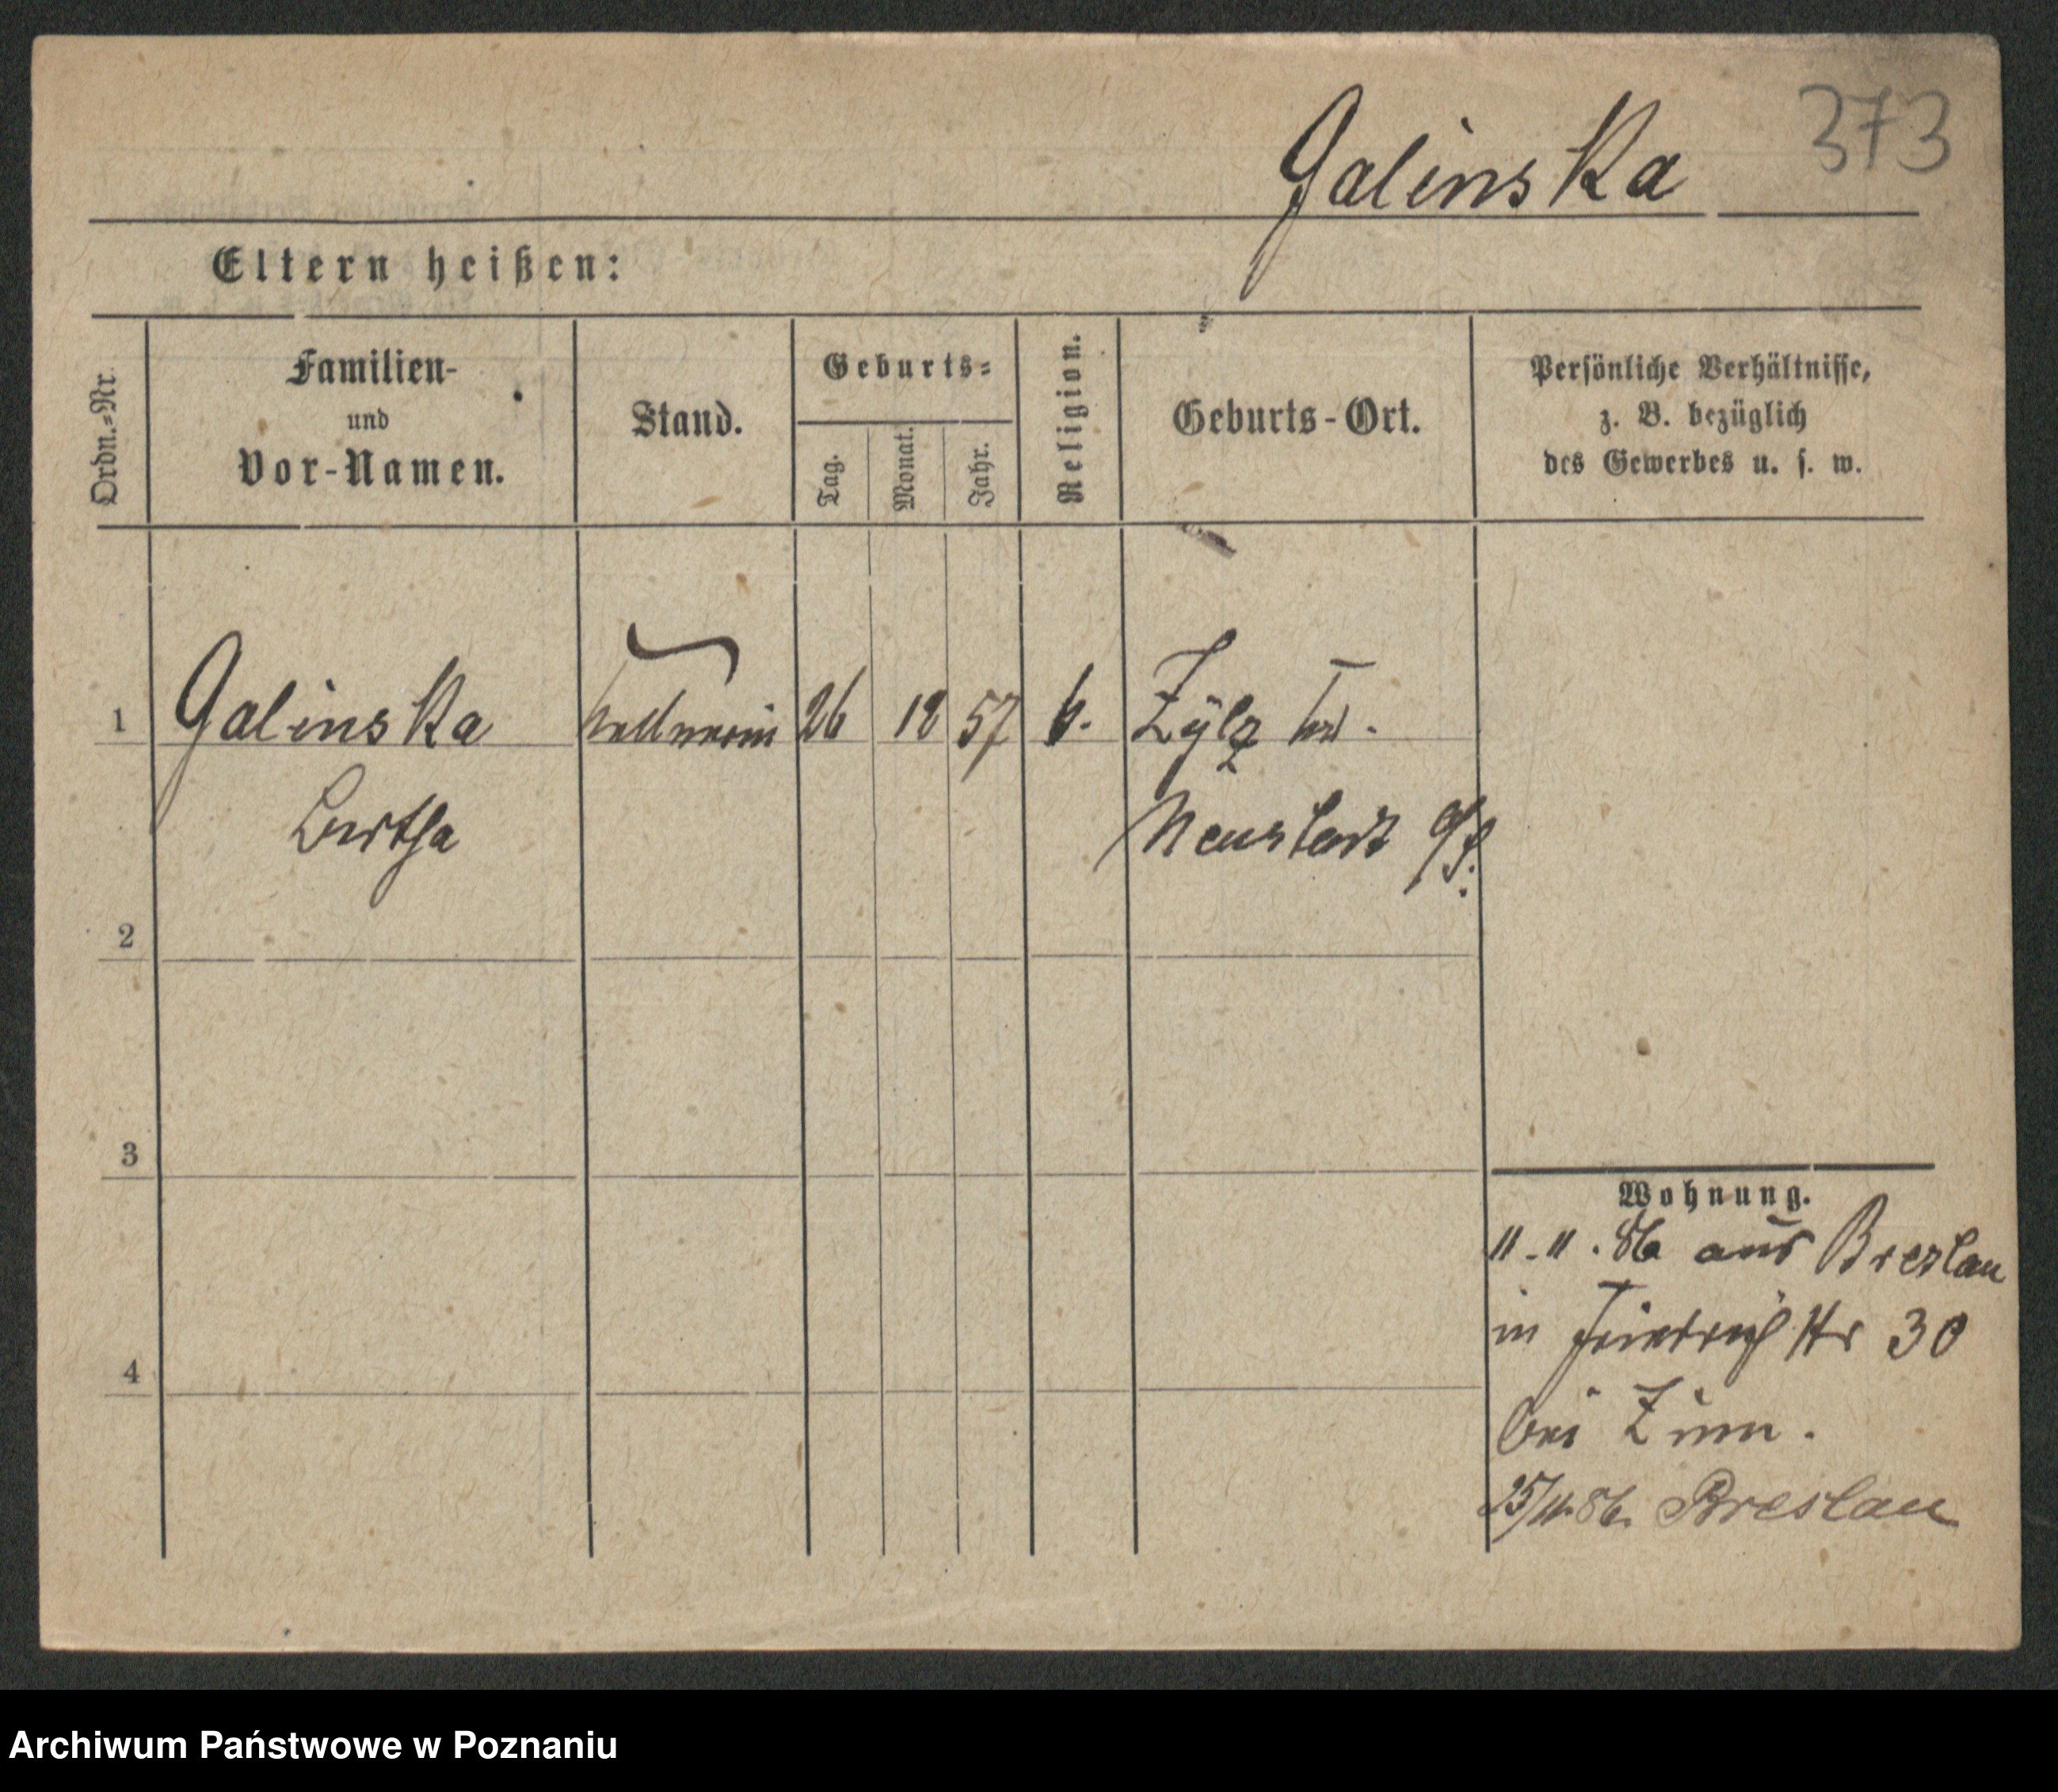 373
Galinska
Eltern heißen:
Ordn.=Nr.
Familien-
und
Vor-Namen.
Stand.
Geburts=
Tag.
Monat.
Jahr.
Religion.
Geburts-Ort.
Persönliche Verhältnisse,
z. B. bezüglich
des Gewerbes u. s. w.
1 Galinska Kellnerin 26 12 57 k. Zülz
Bertha Neustadt O/S.
2
3
4
Wohnung.
11.11.86 aus Breslau
in Friedrichstr 30
bei Zinn.
25/11.86. Breslau
Archiwum Państwowe w Poznaniu